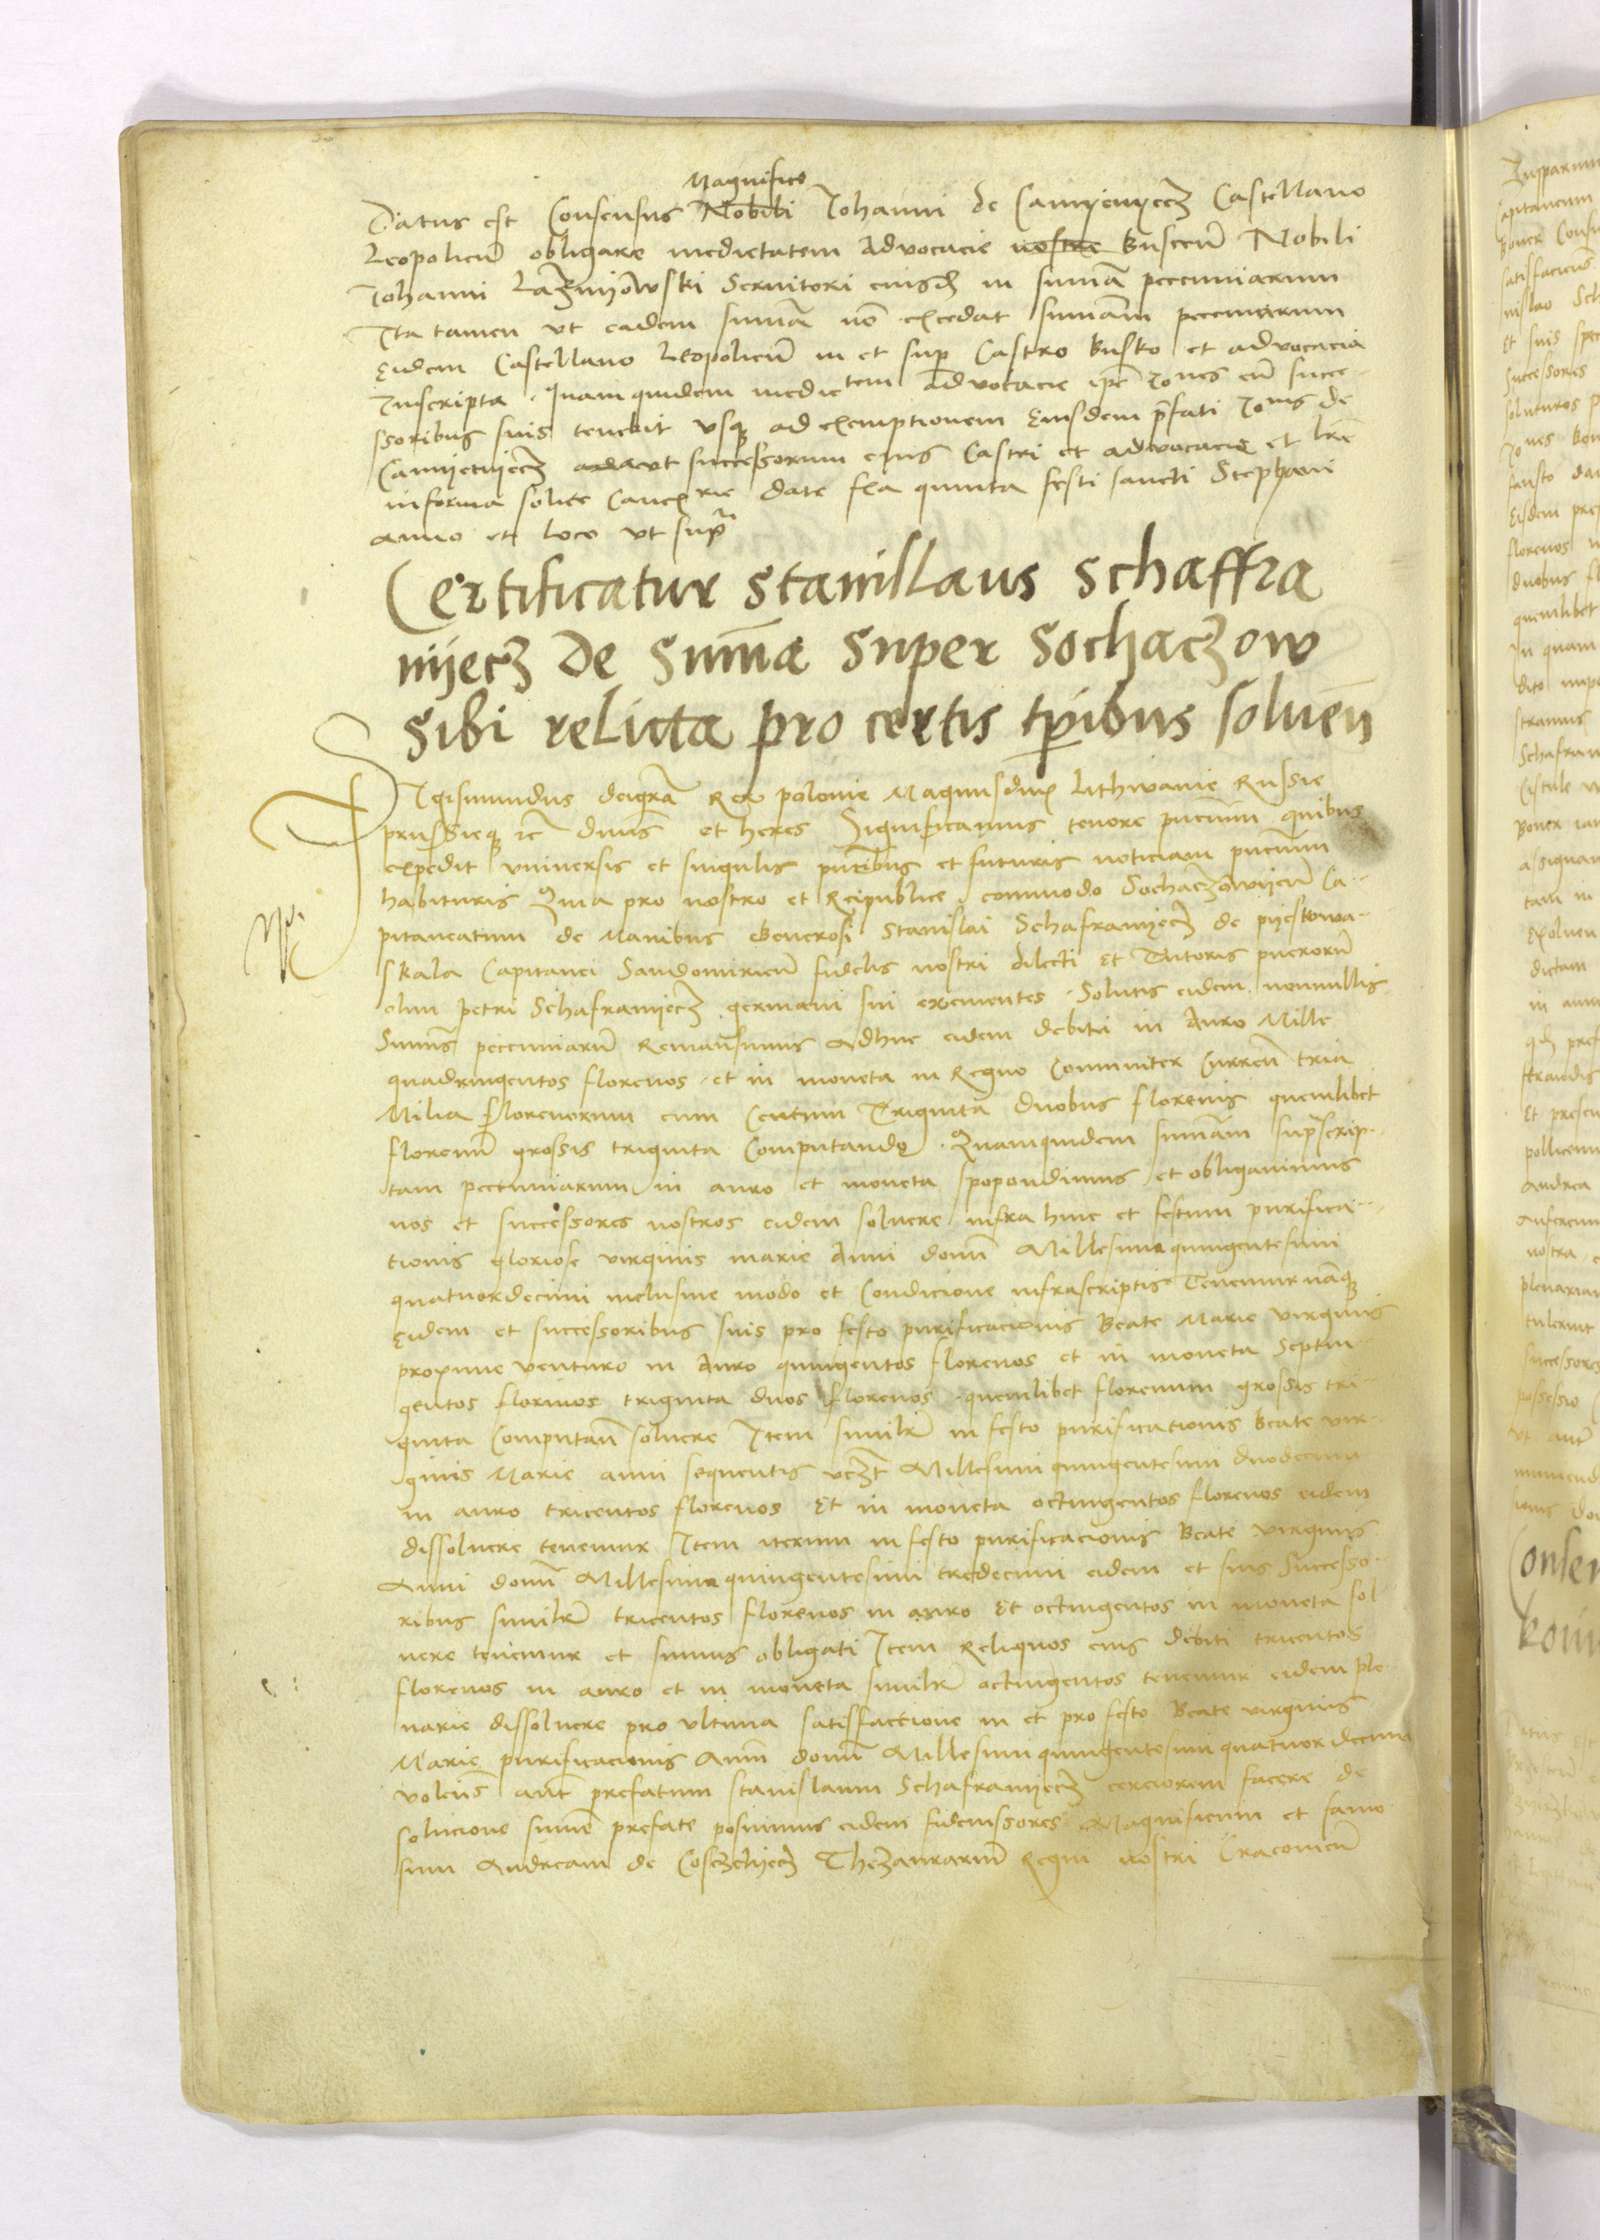 Magnifico
Datus est Consensus Nobili Johanni de Camyenyecz Castellano
Leopolieñ obligare medietatem Advocacie nostre Busceñ Nobili
Johanni Lazmyowski Servitori eiusdẽ in sum̃a pecuniarum
Ita tamen ut eadem sum̃a nõ excedat sum̃am pecuniarum
Eidem Castellano Leopolieñ in et sup Castro Busko et advocacia
Inscripta. Quam quidem medietem advocacie ip̃e Joñes cũ succe-
ssoribus suis tenebit usq̃ ad exemptionem Eiusdem p̃fati Joñis de
Camyenyecz aut successorum eius Castri et advocacie et lr̃e
in forma solite Cancellrie date f̃ia quinta festi sancti Stephani
anno et loco ut sup̃
Certificatur Stanislaus Schaffra
nyecz de Sum̃a Super Sochaczow
Sibi relicta pro certis tp̃ibus solueñ
Sigismundus dei gr̃a Rex polonie Magnus dux Lithwanie Russie
prussieq̃ ic̃ dn̄s et heres Significamus tenore p̃ncium quibus
expedit universis et singulis p̃ntibus et futuris noticiam p̃ncium
habituris Quia pro nostro et Reipublice commodo Sochaczowieñ Ca-
pitaneatum de Manibus Generosi Stanislai Schafranyecz de pyeskowa-
skala Capitanei Sandomirieñ fidelis nostri dilecti et Tutoris puerorũ
olim petri Schafranyecz germani sui eximentes. Solutis eidem nonnullis
Sum̃is pecuniarũ Remansimus adhuc eidem debiti in Auro Mille
quadringentos florenos. et in moneta in Regno Communiter Curreñ tria
Milia florenorum cum Centum Triginta duobus florenis quemlibet
florenũ grossis triginta Computando. Quamquidem sum̃am sup̃scrip-
tam pecuniarum in auro et moneta spopondimus et obligavimus
nos et successores nostros eidem solvere infra hinc et festum purifica-
tionis gloriose virginis marie Anni domĩ Millesimi quingentesimi
quatuordecimi inclusive modo et Condicione infrascriptis Tenemur nãq̃
Eidem et successoribus suis pro festo purificacionis Beate Marie virginis
proxime venturo in Auro quingentos florenos et in moneta Septin-
gentos florinos triginta duos florenos. quemlibet florenum grossis tri-
ginta Computañ solvere Item similiter̃ in festo purificationis beate vir-
ginis Marie anni sequentis vcz̃t Millesimi quingentesimi duodecimi
in auro tricentos florenos Et in moneta octingentos florenos eidem
dissolvere tenemur Item iterum in festo purificacionis Beate virginis
Anni domĩ Millesimi quingentesimi tredecimi eidem et suis Successo-
ribus similr̃ tricentos florenos in auro Et octingentos in moneta sol
vere tenemur et sumus obligati Item Reliquos eius debiti tricentos
florenos in auro et in moneta similr̃ octingentos tenemur eidem ple
narie dissolvere pro ultima satisfactione in et pro festo Beate virginis
Marie purificacionis Anni domĩ Millesimi quingentesimi quatuordecimi
volens aut̃ prefatum Stanislaum Schafranyecz cerciorem facere de
solucione sum̃e prefate posuimus eidem fideiussores Magnificum et famo
sum Andream de Cosczelyecz Thezaurariũ Regni nostri Cracovieñ